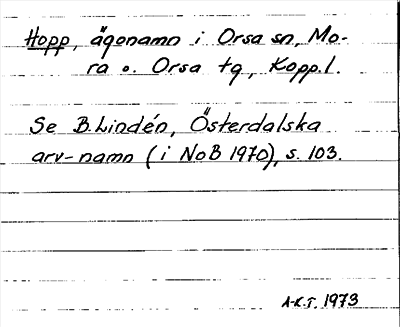 Hopp, ägonamn i Orsa sn, Mo-
ra o. Orsa tg, Kopp.l.
Se B.Lindén, Österdalska
arv-namn (i NoB 1970), s. 103.
A-K.T. 1973